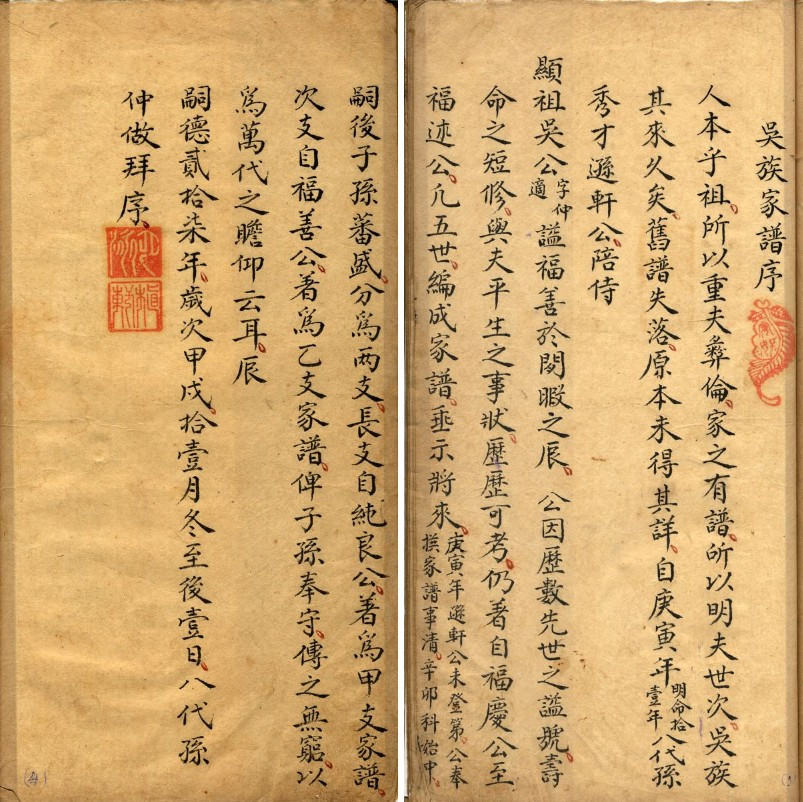 吳族家譜序
人本乎祖所以重夫彝倫家之有譜所以明夫世次吳族
其來久矣舊譜失落原本未得其詳自庚寅年明命拾壹年八代孫
秀才遜軒公陪侍
顯祖吳公字仲適諡福善於閒暇之辰公因歷數先世之諡號壽
命之短修與夫平生之事狀歷歷可考仍著自福慶公至
福述公凡五世編成家譜垂示將來庚寅年遜軒公未登第公奉
撰家譜事清辛卯科始中
嗣後子孫蕃盛分爲兩支長支自純良公著爲甲支家譜
次支自福善公著爲乙支家譜俾子孫奉守傳之無窮以
爲萬代之瞻仰云耳辰
嗣德貳拾柒年歲次甲戌拾壹月冬至後壹日八代孫
仲做拜序